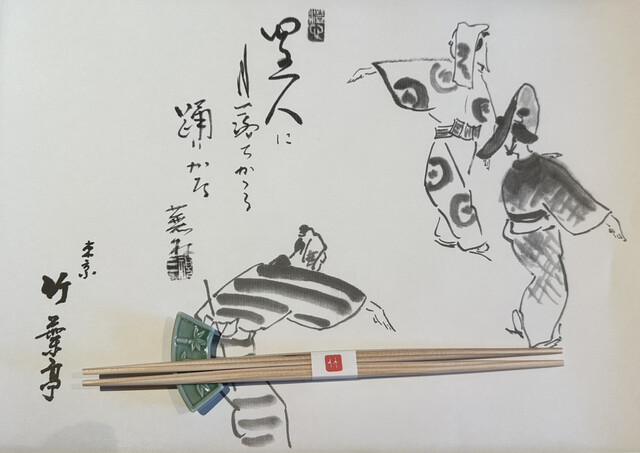 四五人に
月落ちかゝる
踊りかな
蕪村
東京
竹葉亭
竹